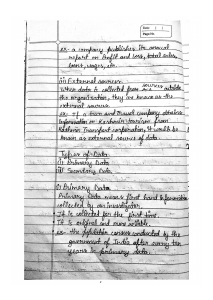 Date
Page No.
ex- a company publishes its annual
report on Profit and loss, total sales,
loans, wages, etc.
ii) External sources-
When data is collected from sources outside
the organisation, they are known as the
external sources.
ex- If a tour and Travel company obtains
information on Karnataka tourism from
Karnataka Transport corporation, it would be
known as external source of data.
Types of Data
i) Primary Data
ii) Secondary Data
i) Primary Data
Primary Data means first hand information
collected by an investigator.
• It is collected for the first time.
• It is original and more reliable.
• ex- the population census conducted by the
government of India after every ten
years is primary data.